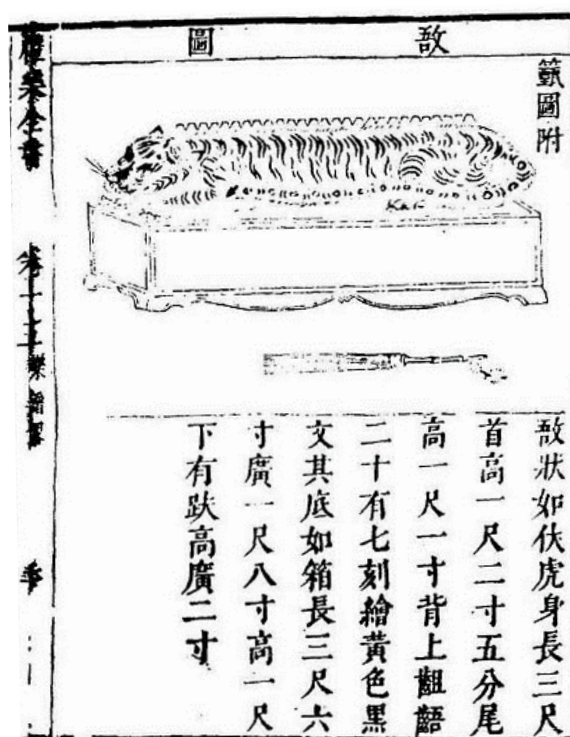 敔圖
籈圖附
敔狀如伏虎身長三尺
首高一尺二寸五分尾
高一尺一寸背上齟齬
二十有七刻繪黃色黑
文其底如箱長三尺六
寸廣一尺八寸高一尺
下有趺高廣二寸
禮樂全書